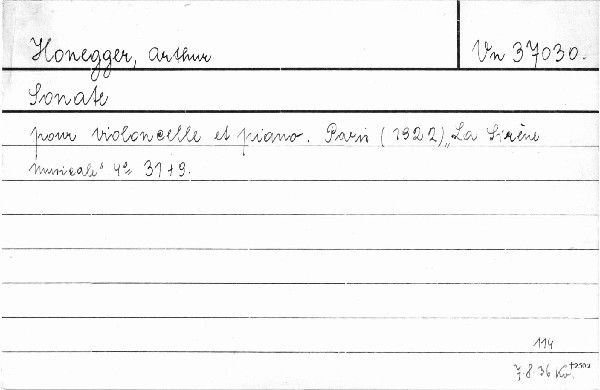 Honegger, Arthur
Vn 37030.
Sonate
pour violoncelle et piano. Paris (1922) „La Sirène
musicale" 4° 31+9.
114
7.8.36 Kv.